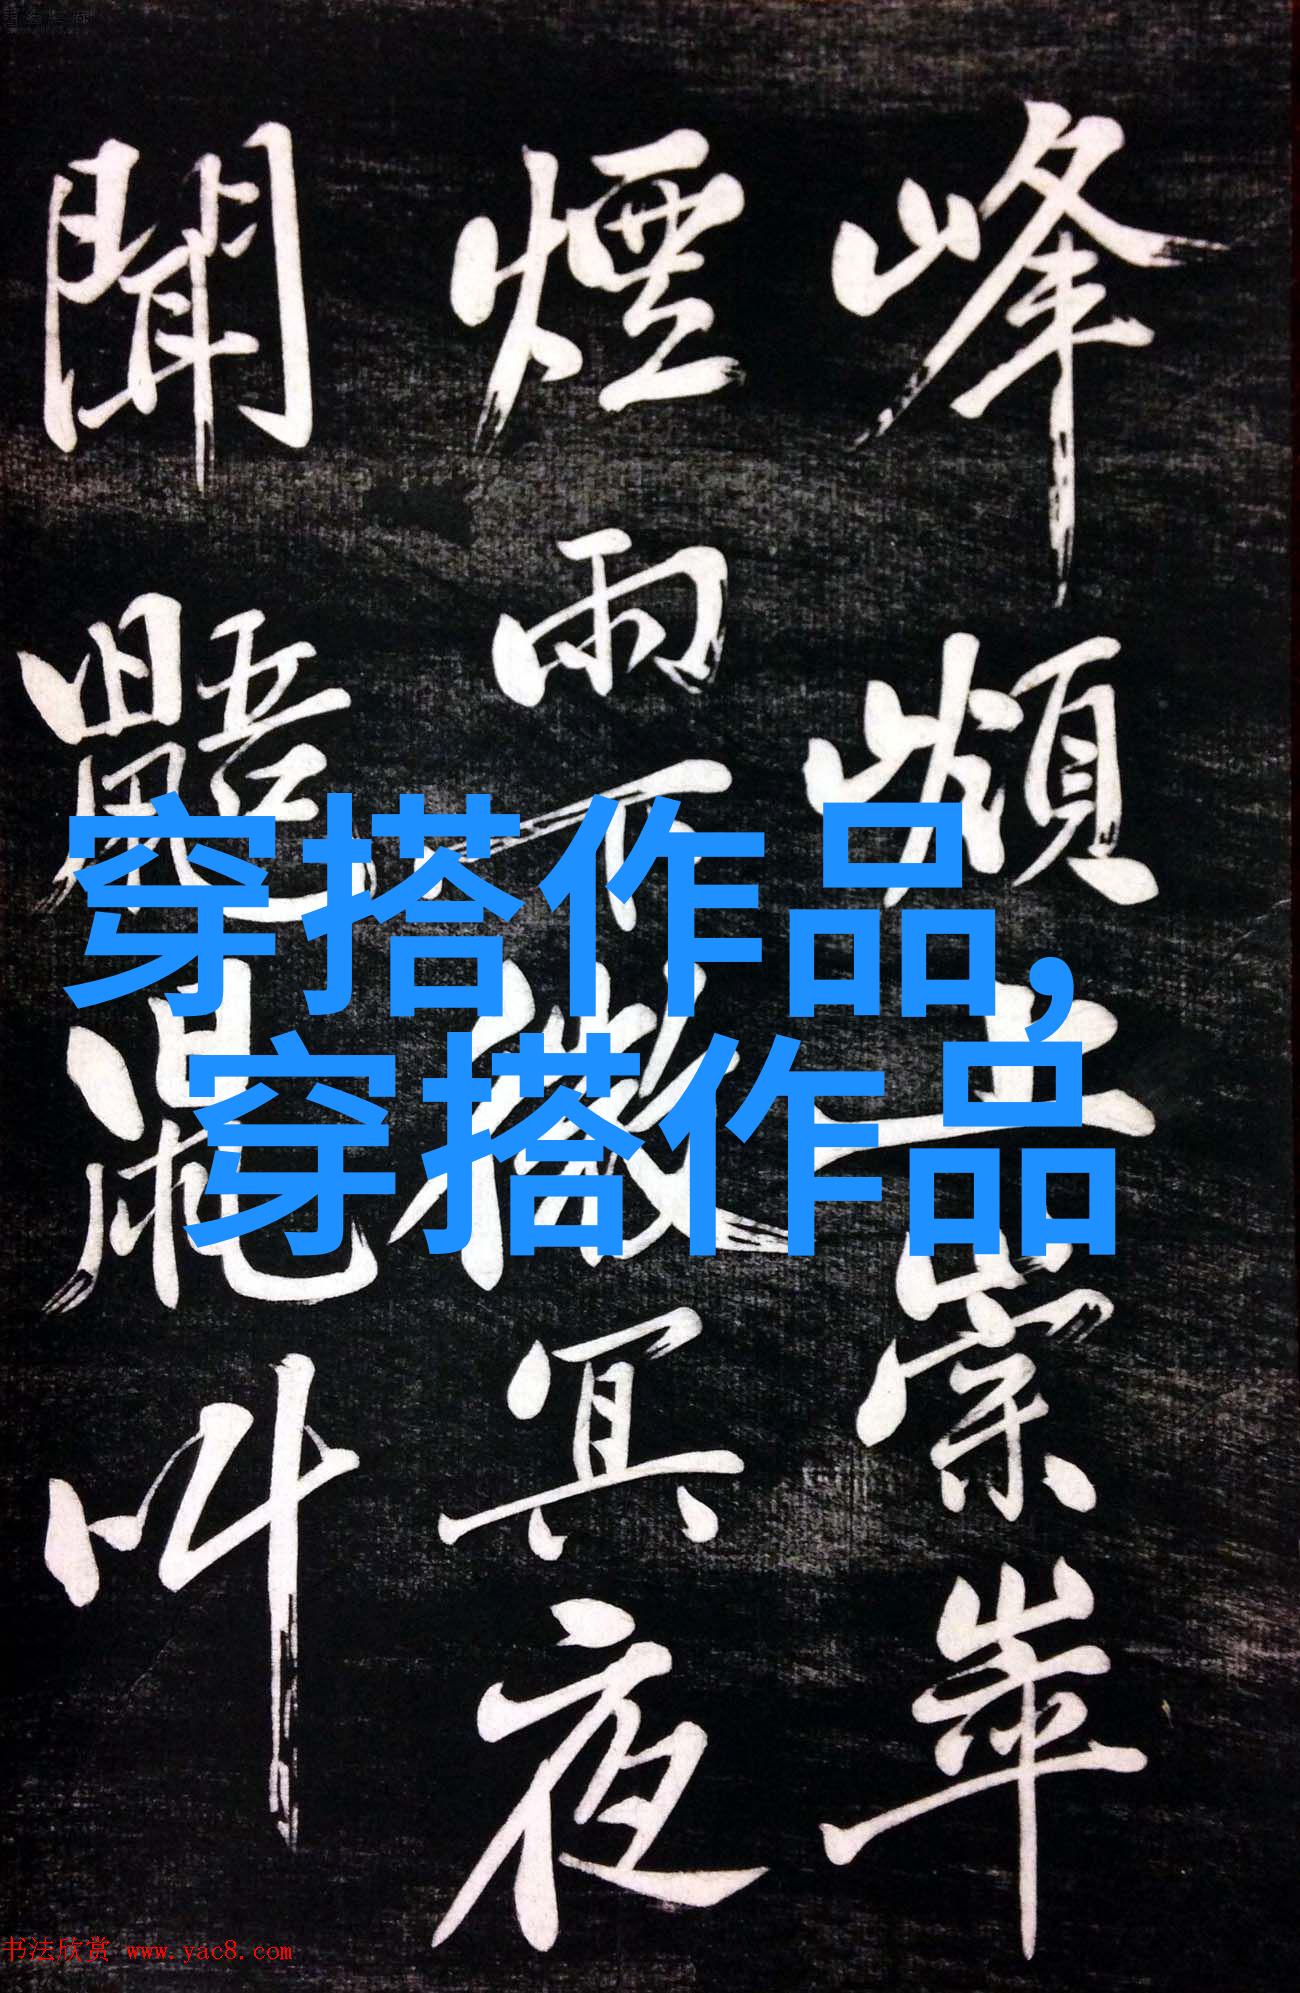 峰上崇崒
煙雨下微冥夜
聞鼯鼠叫
穿搭作品,
穿搭作品
书法欣赏 www.yac8.com